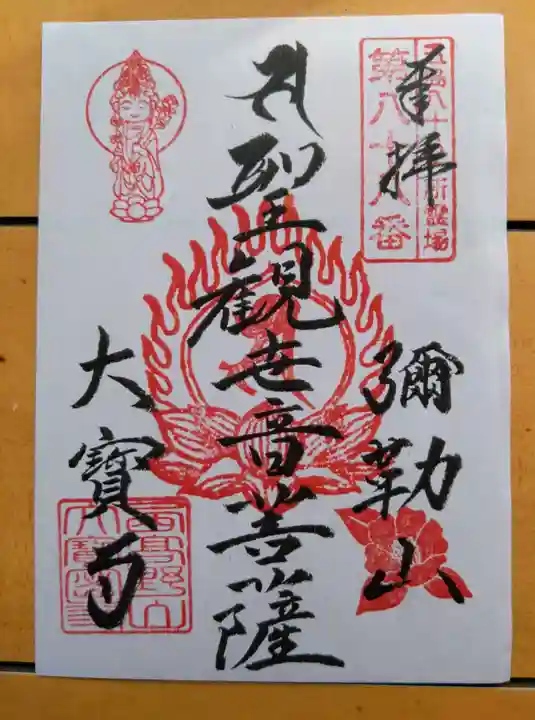 奉拝
第八十八番
彌勒山
聖観世音菩薩
大寳寺